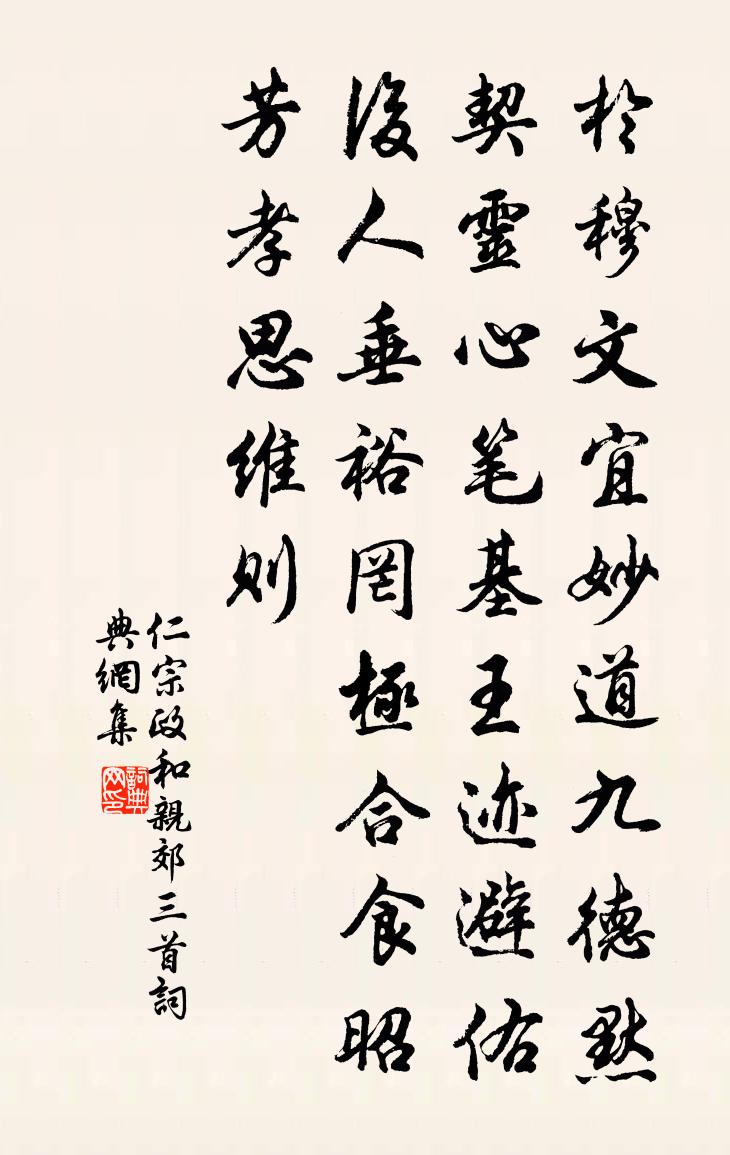 於穆文宜妙道九德默
契靈心笔基王迹避佑
後人垂裕罔極合食昭
芳孝思維則
仁宗政和親郊三首詞
典網集
詞典
网印